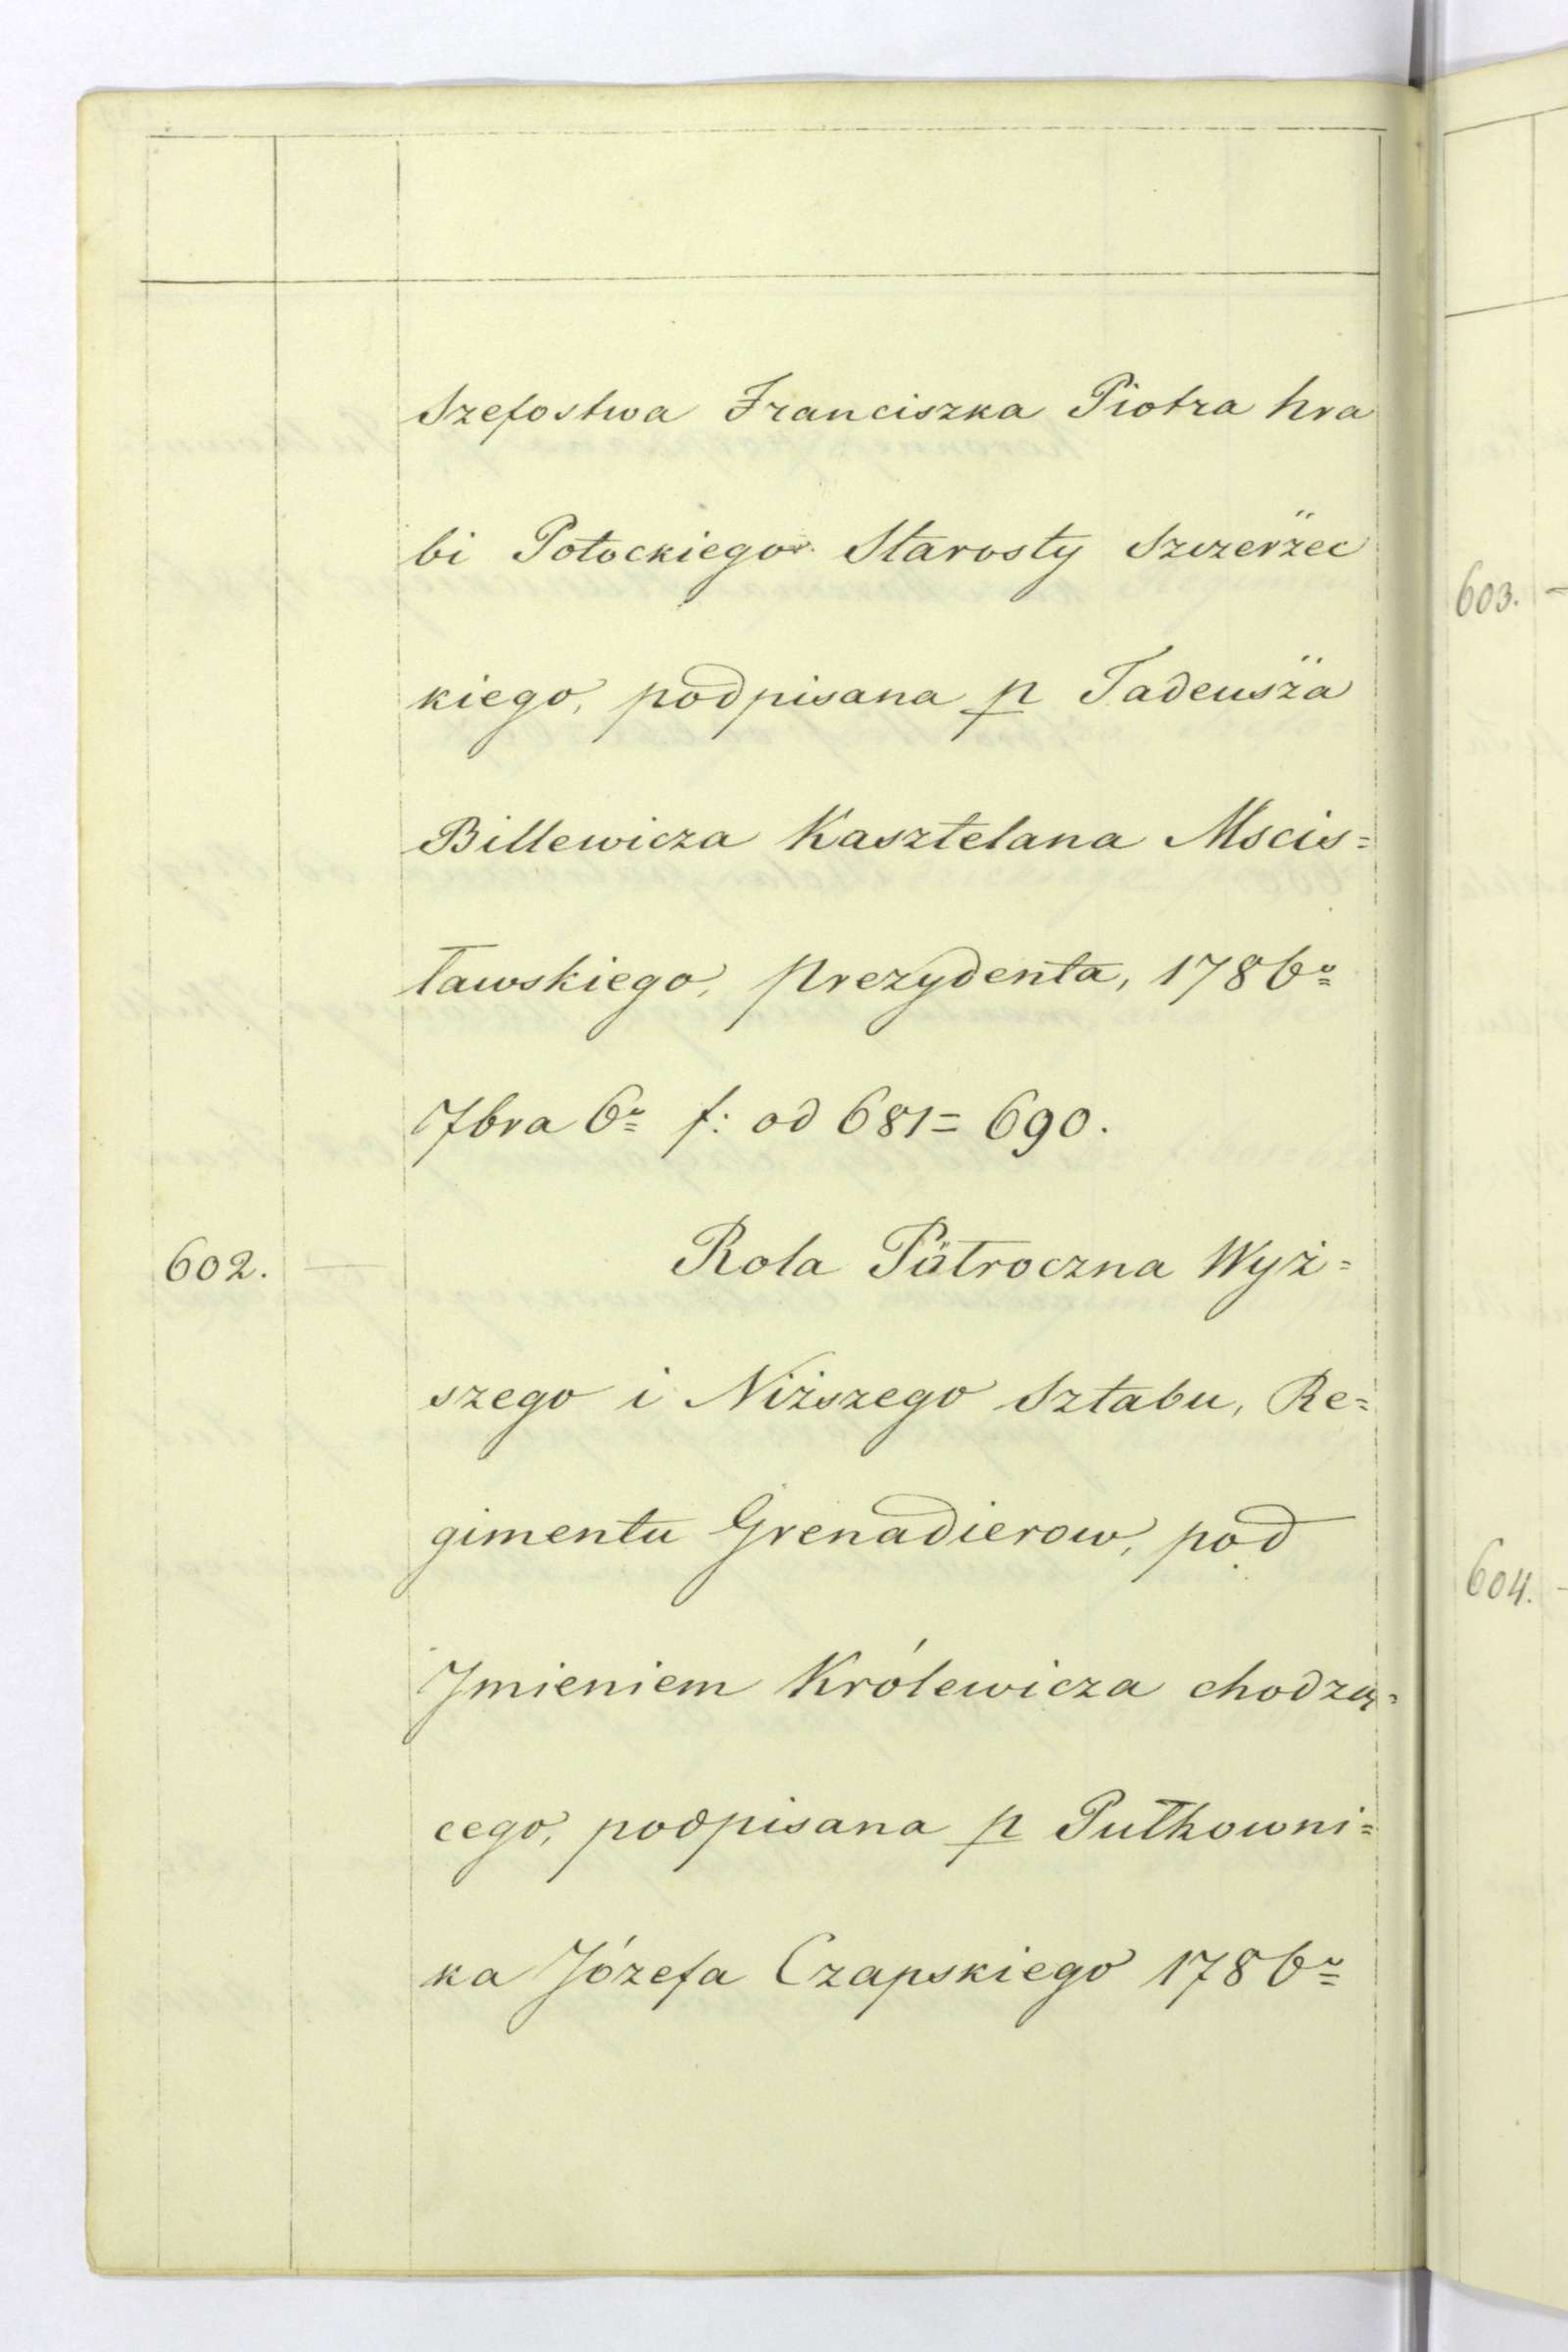 Szefostwa Franciszka Piotra hra
bi Potockiego Starosty Szczerżec
kiego, podpisana p Tadeusza
Billewicza Kasztelana Mscis=
ławskiego, prezydenta, 1786º
7bra 6º f: od 681=690.
602. — Rola Półroczna Wyż=
szego i Niższego Sztabu, Re=
gimentu Grenadierow, pod
Jmieniem Królewicza chodzą=
cego, podpisana p Pułkowni=
ka Józefa Czapskiego 1786º
603. —
604. -